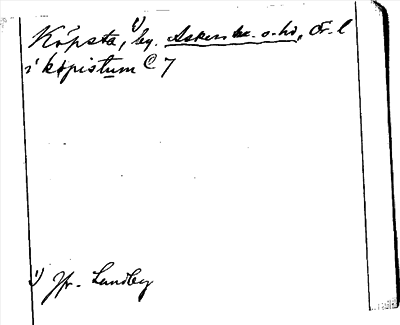 Köpsta, 1) by. Askers sn. o. hd, Ör. l
i köpistum C 7
1) Jfr. Lundby